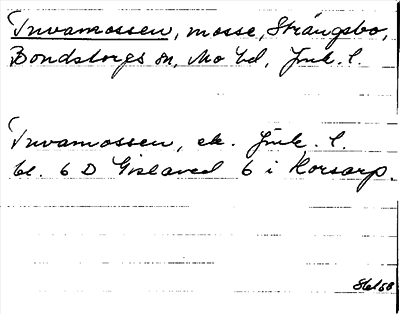 Tnvamossen, mosse, Strängsbo,
Bondstorps sn, Mo hd, Jmk. l.
Tnvamossen, ek. Jmk. l.
bl. 6 D Gislaved 6 i Korsarp.